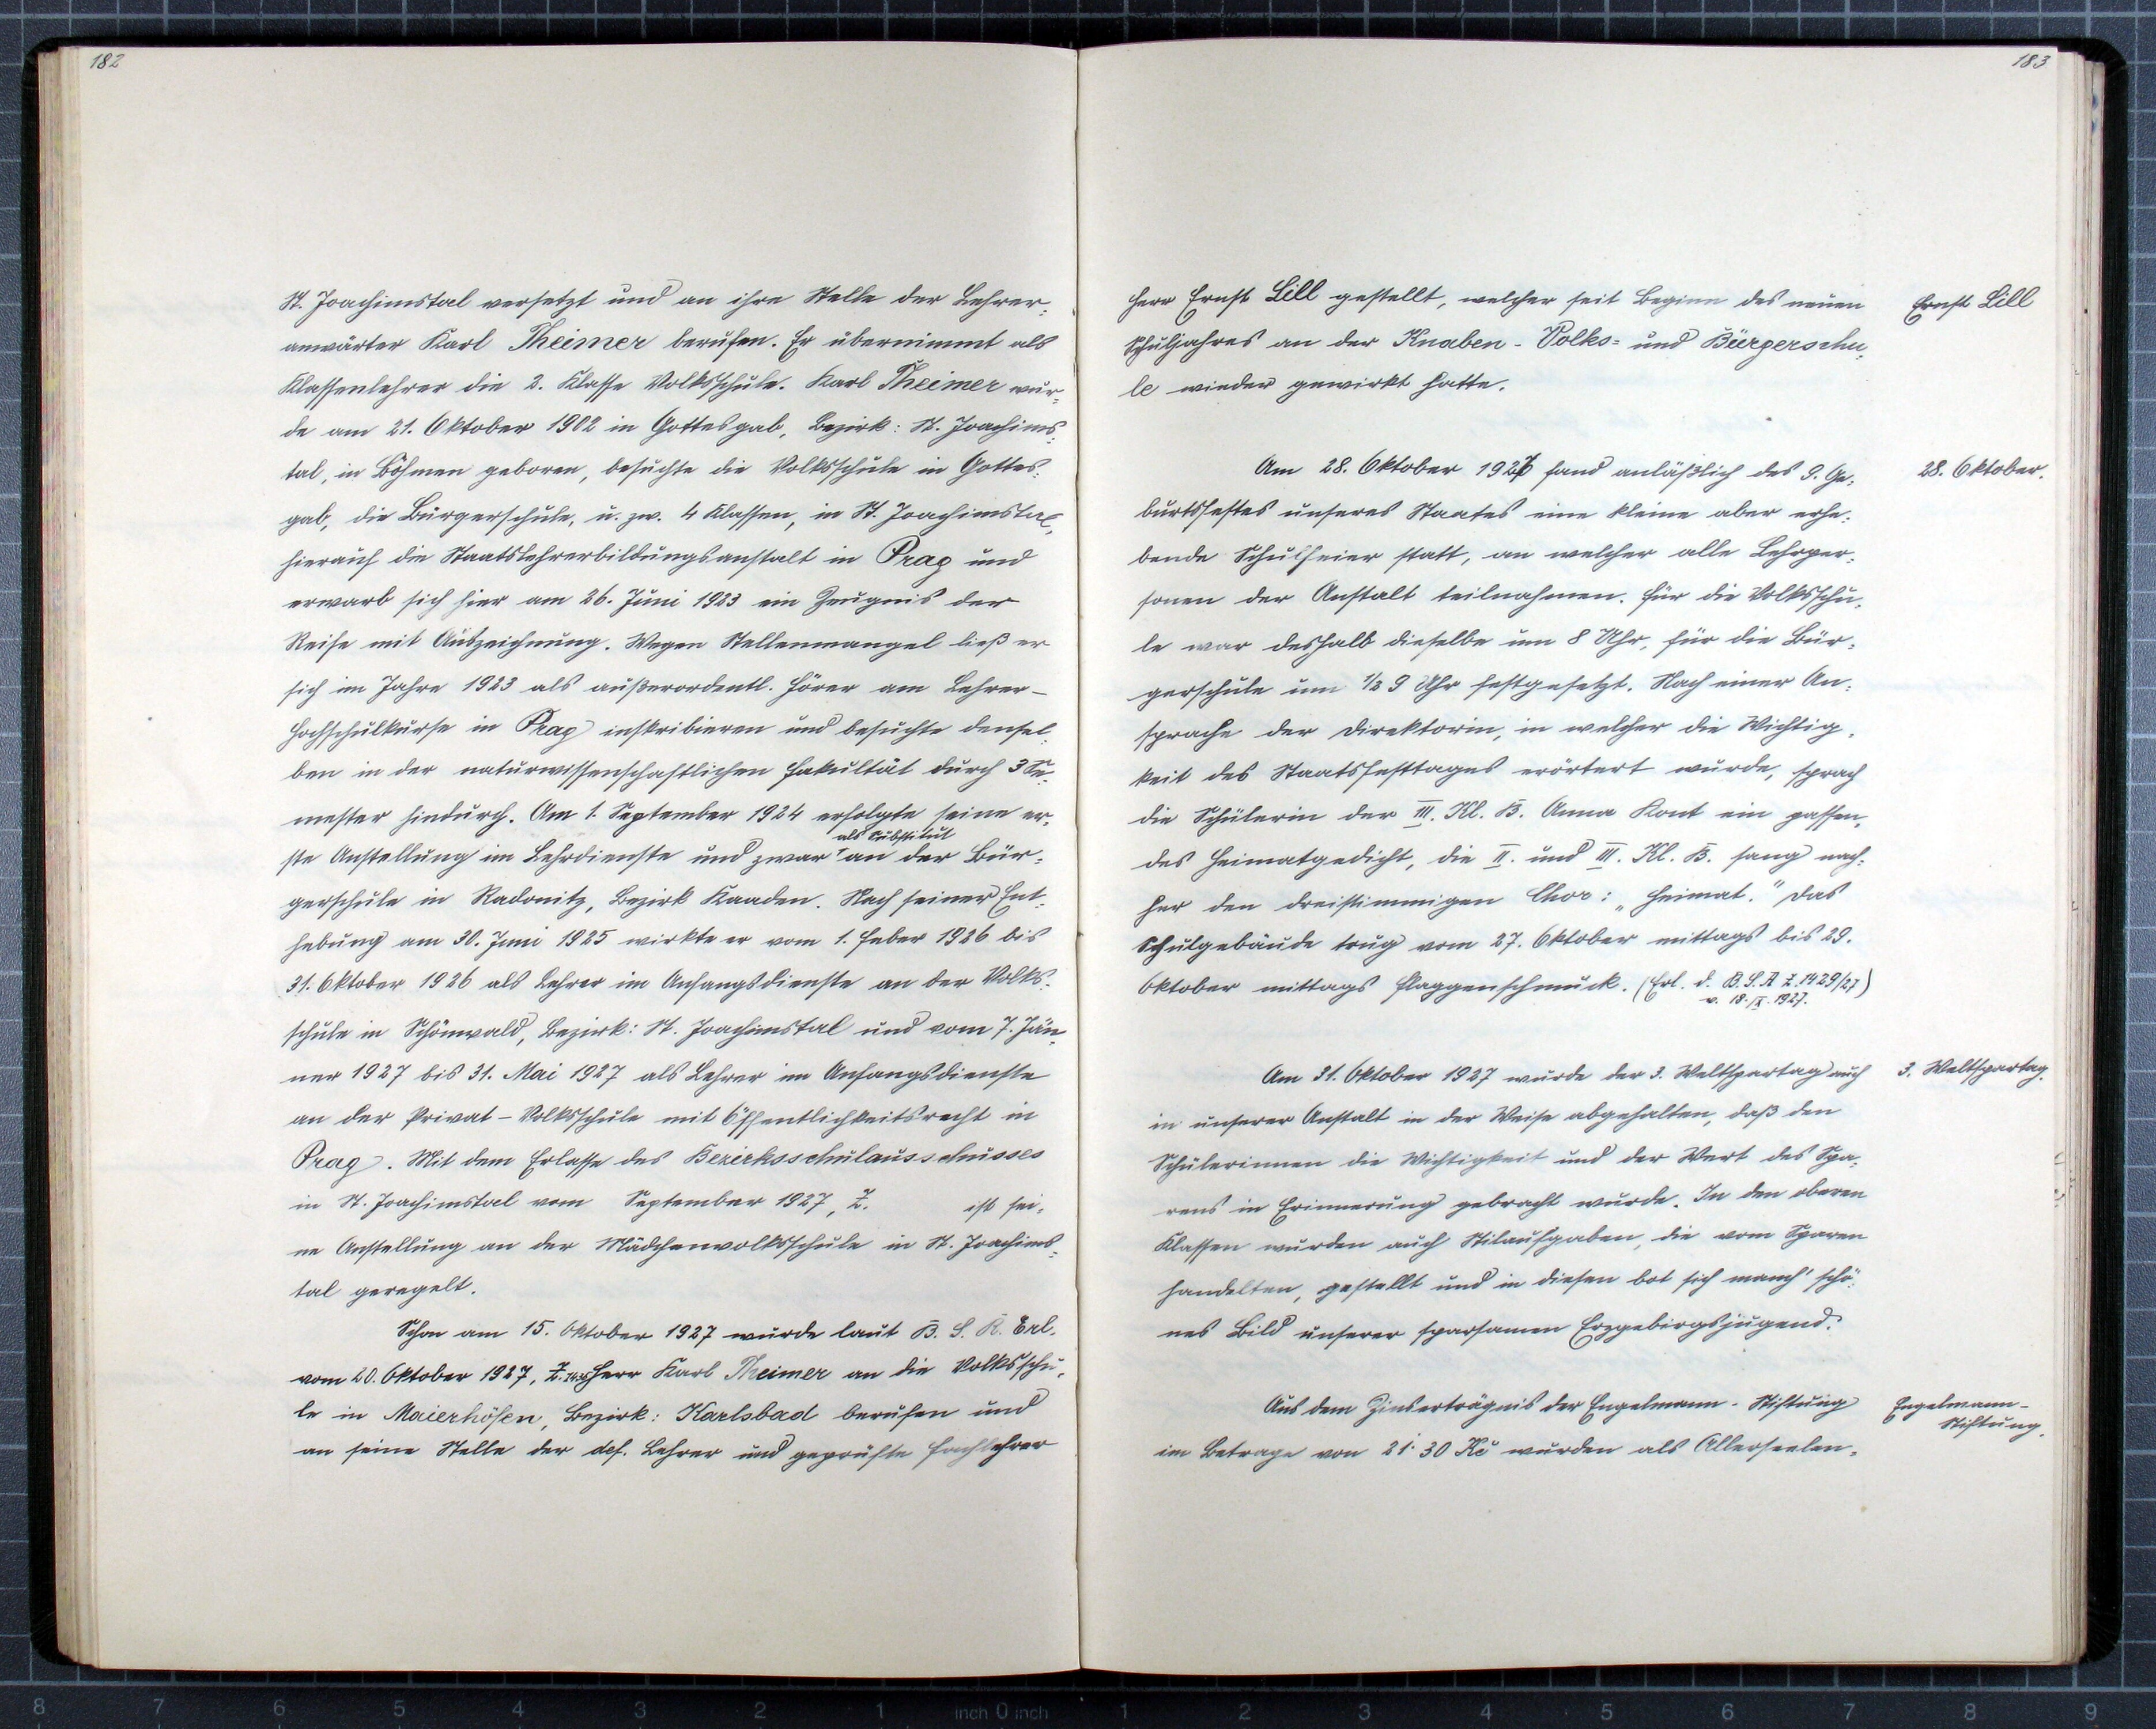 182
St. Joachimstal versetzt und an ihre Stelle der Lehrer-
anwärter Karl Theimer berufen. Er übernimmt als
Klassenlehrer die 2. Klasse Volksschule. Karl Theimer wur-
de am 21. Oktober 1902 in Gottesgab, Bezirk: St. Joachims-
tal, in Böhmen geboren, besuchte die Volksschule in Gottes-
gab, die Bürgerschule, u. zw. 4 Klassen, in St. Joachimstal,
hierauf die Staatslehrerbildungsanstalt in Prag und
erwarb sich hier am 26. Juni 1923 ein Zeugnis der
Reife mit Auszeichnung. Wegen Stellenmangel ließ er
sich im Jahre 1923 als außerordentl. Hörer am Lehrer-
Hochschulkurse in Prag inskribieren und besuchte densel-
ben in der naturwissenschaftlichen Fakultät durch 3 Se-
mester hindurch. Am 1. September 1924 erfolgte seine er-
als Substitut
ste Anstellung im Lehrdienste und zwar an der Bür-
gerschule in Radonitz, Bezirk Kaaden. Nach seiner Ent-
hebung am 30. Juni 1925 wirkte er vom 1. Feber 1926 bis
31. Oktober 1926 als Lehrer im Anfangsdienste an der Volks-
schule in Schönwald, Bezirk: St. Joachimstal und vom 7. Jän-
ner 1927 bis 31. Mai 1927 als Lehrer im Anfangsdienste
an der Privat-Volksschule mit Öffentlichkeitsrecht in
Prag. Mit dem Erlasse des Bezirksschulausschusses
in St. Joachimstal vom September 1927, Z. ist sei-
ne Anstellung an der Mädchenvolksschule in St. Joachims-
tal geregelt.
Schon am 15. Oktober 1927 wurde laut B. S. R. Erl.
vom 20. Oktober 1927, Z. Herr Karl Theimer an die Volksschu-
le in Maierhöfen, Bezirk: Karlsbad berufen und
an seine Stelle der def. Lehrer und geprüfte Fachlehrer
183
Herr Ernst Lill gestellt, welcher seit Beginn des neuen
Ernst Lill
Schuljahres an der Knaben-Volks- und Bürgerschu-
le wieder gewirkt hatte.
Am 28. Oktober 1927 fand anläßlich des 9. Ge-
28. Oktober.
burtsfestes unseres Staates eine kleine aber erhe-
bende Schulfeier statt, an welcher alle Lehrper-
sonen der Anstalt teilnahmen. Für die Volksschu-
le war deshalb dieselbe um 8 Uhr, für die Bür-
gerschule um 1/2 9 Uhr festgesetzt. Nach einer An-
sprache der Direktorin, in welcher die Wichtig-
keit des Staatsfesttages erörtert wurde, sprach
die Schülerin der III. Kl. B. Anna Kont ein passen-
des Heimatgedicht, die II. und III. Kl. B. sang nach-
her den dreistimmigen Chor: „Heimat." Das
Schulgebäude trug vom 27. Oktober mittags bis 29.
Oktober mittags Flaggenschmuck. (Erl. d. B.S.A Z. 1429/27)
v. 18./X. 1927.
Am 31. Oktober 1927 wurde der 3. Weltspartag auch
3. Weltspartag.
in unserer Anstalt in der Weise abgehalten, daß den
Schülerinnen die Wichtigkeit und der Wert des Spa-
rens in Erinnerung gebracht wurde. In den oberen
Klassen wurden auch Stilaufgaben, die vom Sparen
handelten, gestellt und in diesen bot sich manch' schö-
nes Bild unserer sparsamen Erzgebirgsjugend.
Aus dem Zinserträgnis der Engelmann-Stiftung
Engelmann-
Stiftung.
im Betrage von 21·30 Kč wurden als Allerseelen-